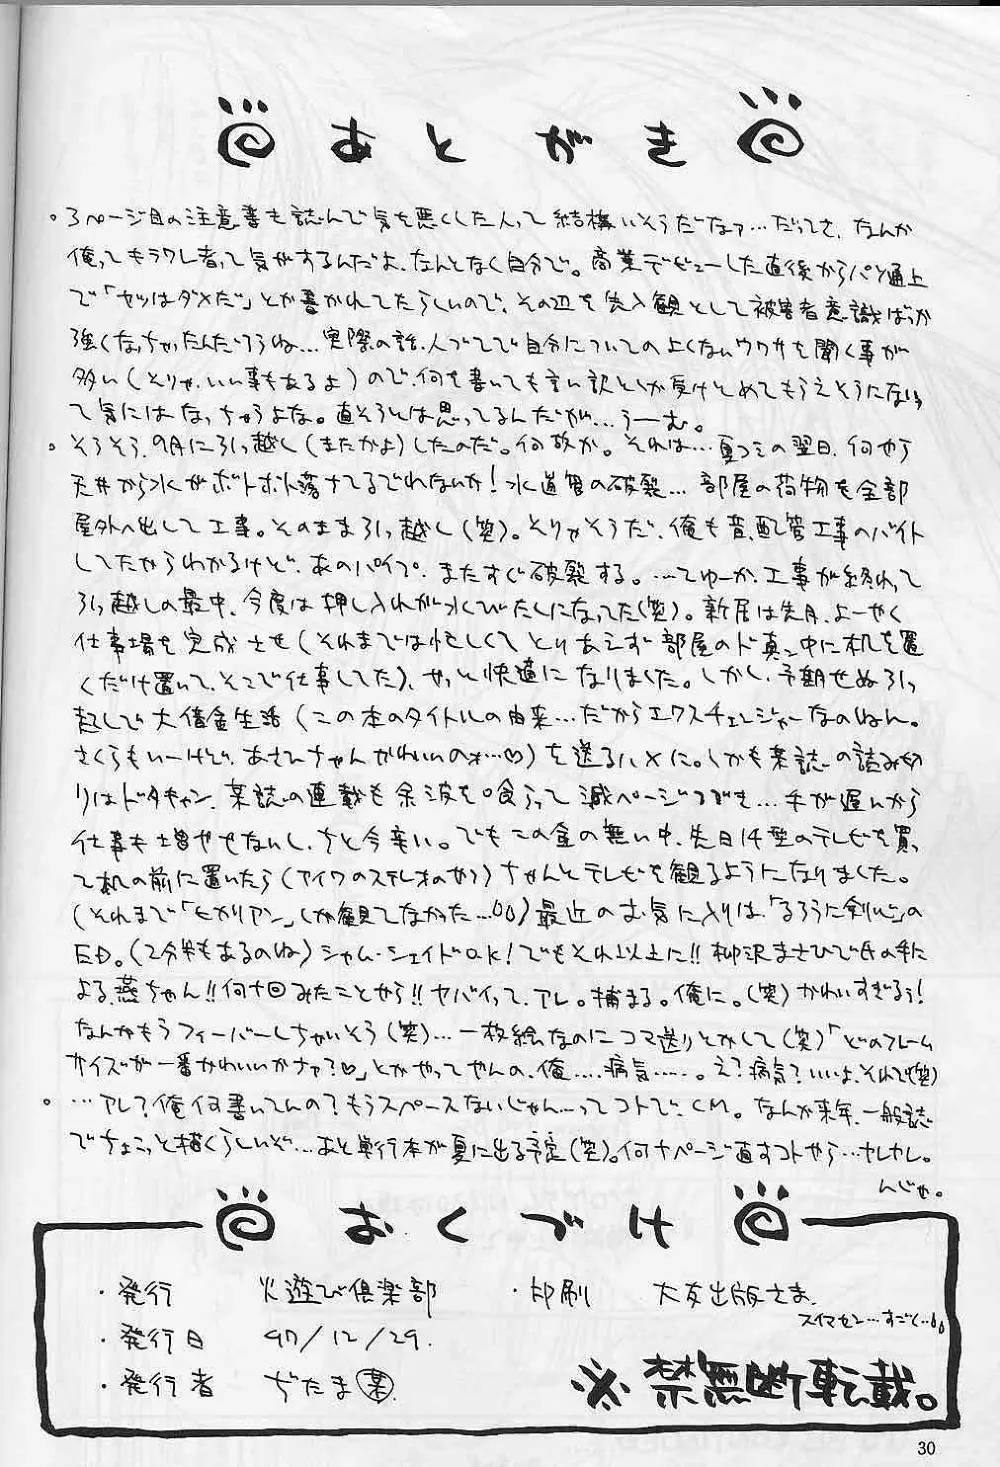 あとがき
。3ページ目の注意書も読んで気を悪くした人って結構いそうだなァ…だってさ、なんか
俺ってキラワレ者って気がするんだよ、なんとなく自分で。商業デビューした直後からパソ通上
で「ヤツはダメだ」とか書かれてたらしいので、その辺を先入観として被害者意識ばっか
強くなっちゃったんだろうね…実際の話、人づてで自分についての上くないウワサを聞く事が
多い(とりゃ、いい事もあるよ)ので、何を書いても言い訳としか受けとめてもらえそうにないっ
て気にはなっちゃうよな。直そうとは思ってるんだが…うーむ。
。そろそろ、9月に引っ越し(またかよ)したのだ。何故か。それは…夏コミの翌日、何やら
天井から水がボトボト落ちてるでわないか!水道管の破裂…部屋の荷物を全部
屋外へ出して工事。そのまま引っ越し(笑)。そりゃそうだ、俺も昔、配管工事のバイト
してたからわかるけど、あのパイプ、またすぐ破裂する。…てゆーか、工事が終わって
引っ越しの最中、今度は押し入れが水びたしになってた(笑)。新居は先月、よーやく
仕事場を完成させ(それまでは忙しくてとりあえず部屋のド真ン中に机を置
くだけ置いて、そこで仕事してた)、やっと快適になりました。しかし、予期せぬ引っ
越しで大借金生活(この本のタイトルの由来…だからエクスチェンジャーなのねん。
さくらもいーけど、あさひちゃんかわいいのォ…♡)を送るハメに。しかも某誌の読み切
りはドタキャン、某誌の連載も余波を喰らって減ページ でも…手が遅いから
仕事も増やせないし、ちと今辛い。でもこの金の無い中、先日14型のテレビを買っ
て机の前に置いたら(アイワのステレオのやつ)ちゃんとテレビを観るようになりました。
(それまで「ヒカリアン」しか観てなかった…)最近のお気に入りは、「るろうに剣心」の
ED。(2分半もあるのね)シャム・シェイドOK!でもそれ以上に!!柳沢まさひで氏の手に
よる燕ちゃん!!何十回みたことやら!!ヤバイって、アレ。捕まる。俺に。(笑)かわいすぎるぅ!
なんかもうフィーバーしちゃいそう(笑)…一枚絵なのにコマ送りとかして(笑)「どのフレーム
サイズが一番かわいいかナァ?♡」とかやってやんの、俺……病気……。え?病気?いいよ、それで(笑)
。…アレ?俺何書いてんの?もうスペースないじゃん…ってコトで、CM。なんか来年、一般誌
でちょこっと描くらしいぞ…あと単行本が夏に出る予定(笑)。何十ページ直すコトやら…ヤレヤレ。
んじゃ。
おくづけ
・発行 火遊び倶楽部 ・印刷 大友出版さま
スイマセン…すごく…
・発行日 97/12/29.
・発行者 ぢたま(某).
※禁無断転載。
30